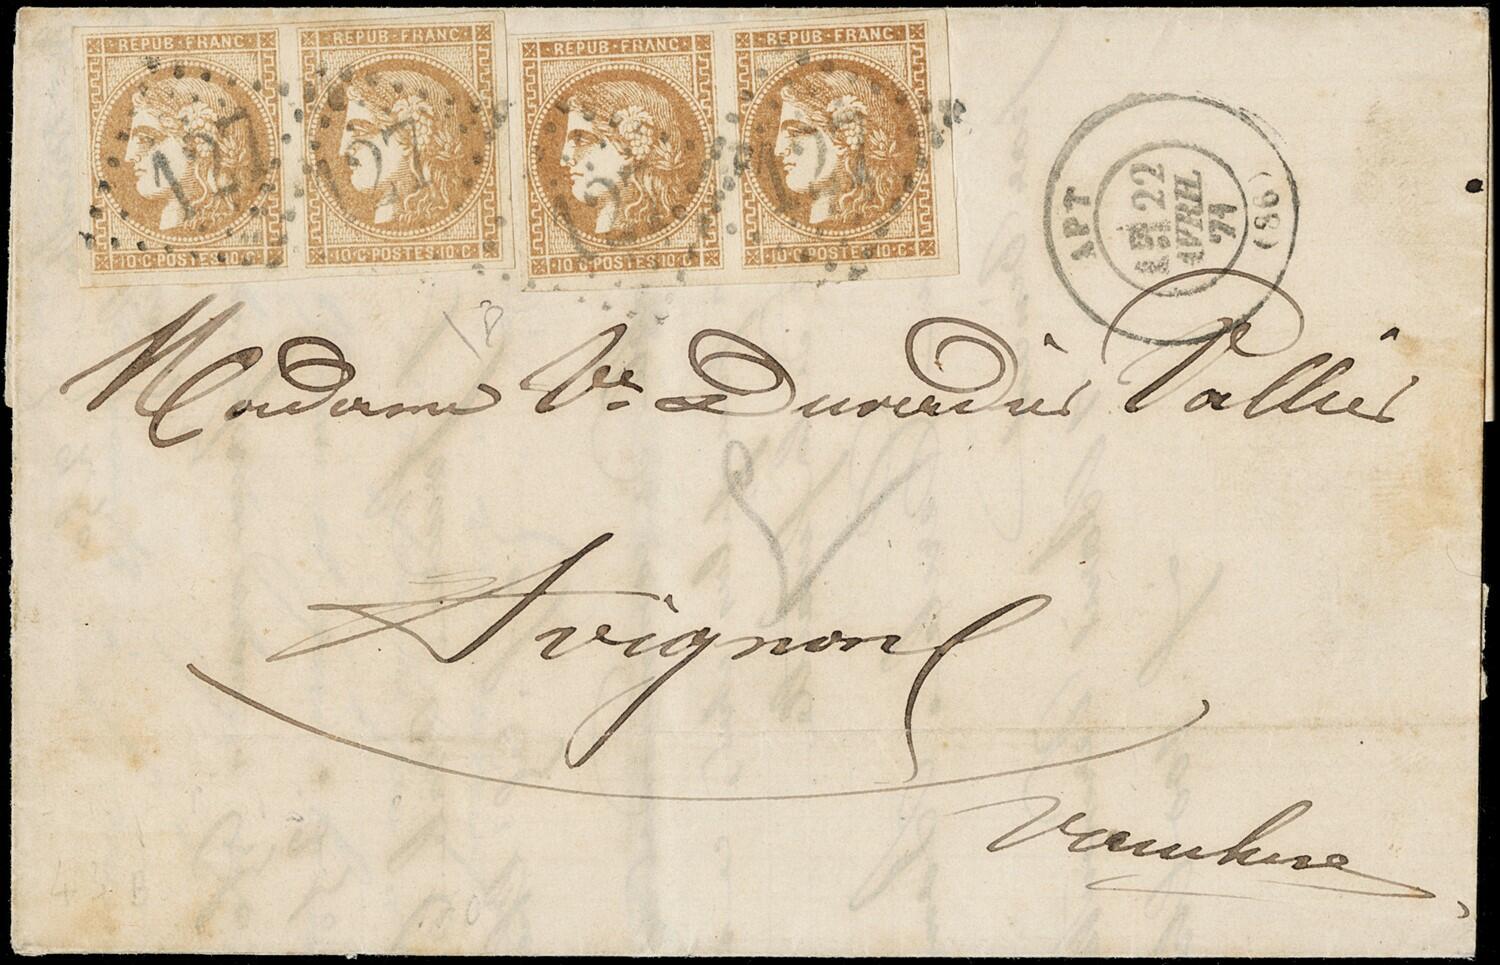 REPUB·FRANC REPUB·FRANC REPUB·FRANC REPUB·FRANC
127 127 127 127
10·C·POSTES·10·C· 10·C·POSTES·10·C· 10·C·POSTES·10·C· 10·C·POSTES·10·C·
APT
22
AVRIL
71
(86)
18
Madame Vve Duverdier Vallier
Avignon
Vaucluse